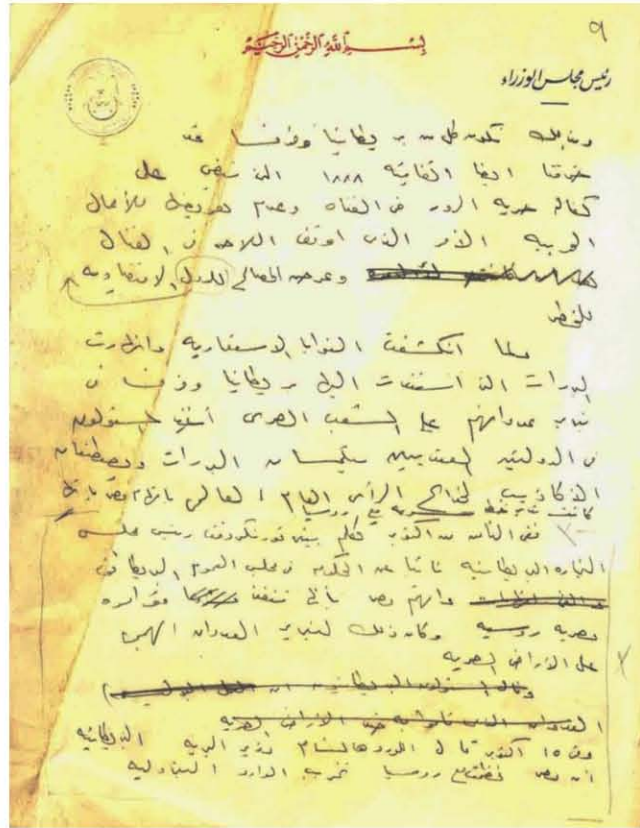 ٩
بسم الله الرحمن الرحيم
رئيس مجلس الوزراء
وبذلك تكون كل من بريطانيا وفرنسا قد
خرقتا ايضا اتفاقية ١٨٨٨ التى تنص على
كفالة حرية المرور فى القناة وعدم تعريضها للأعمال
الحربية الأمر الذى اوقف الملاحة فى القنال
وعرض المصالح للدول الاقتصادية
للخطر
ولما انكشفت النوايا الاستعمارية وانهارت
المبررات التى استندت اليها بريطانيا وفرنسا فى
تبرير عدوانهم على الشعب المصرى أخذ المسئولون
فى الدولتين المعتديتين يلتمسان المبررات ويصطنعان
الأكاذيب لخداع الرأى العام العالمى
ففى الثامن من اكتوبر تكلم بيتر ثورنكروفت رئيس مجلس
التجارة البريطانية نائبا عن الحكومة فى مجلس العموم البريطانى
واتهم مصر بأنها تنفذ مؤامرة
مصرية روسية وكان ذلك لتبرير العدوان الهمجى
على الأراضى المصرية
وفى ١٥ اكتوبر قال اللورد هالشام وزير البحرية البريطانية
ان مصر خططت مع روسيا